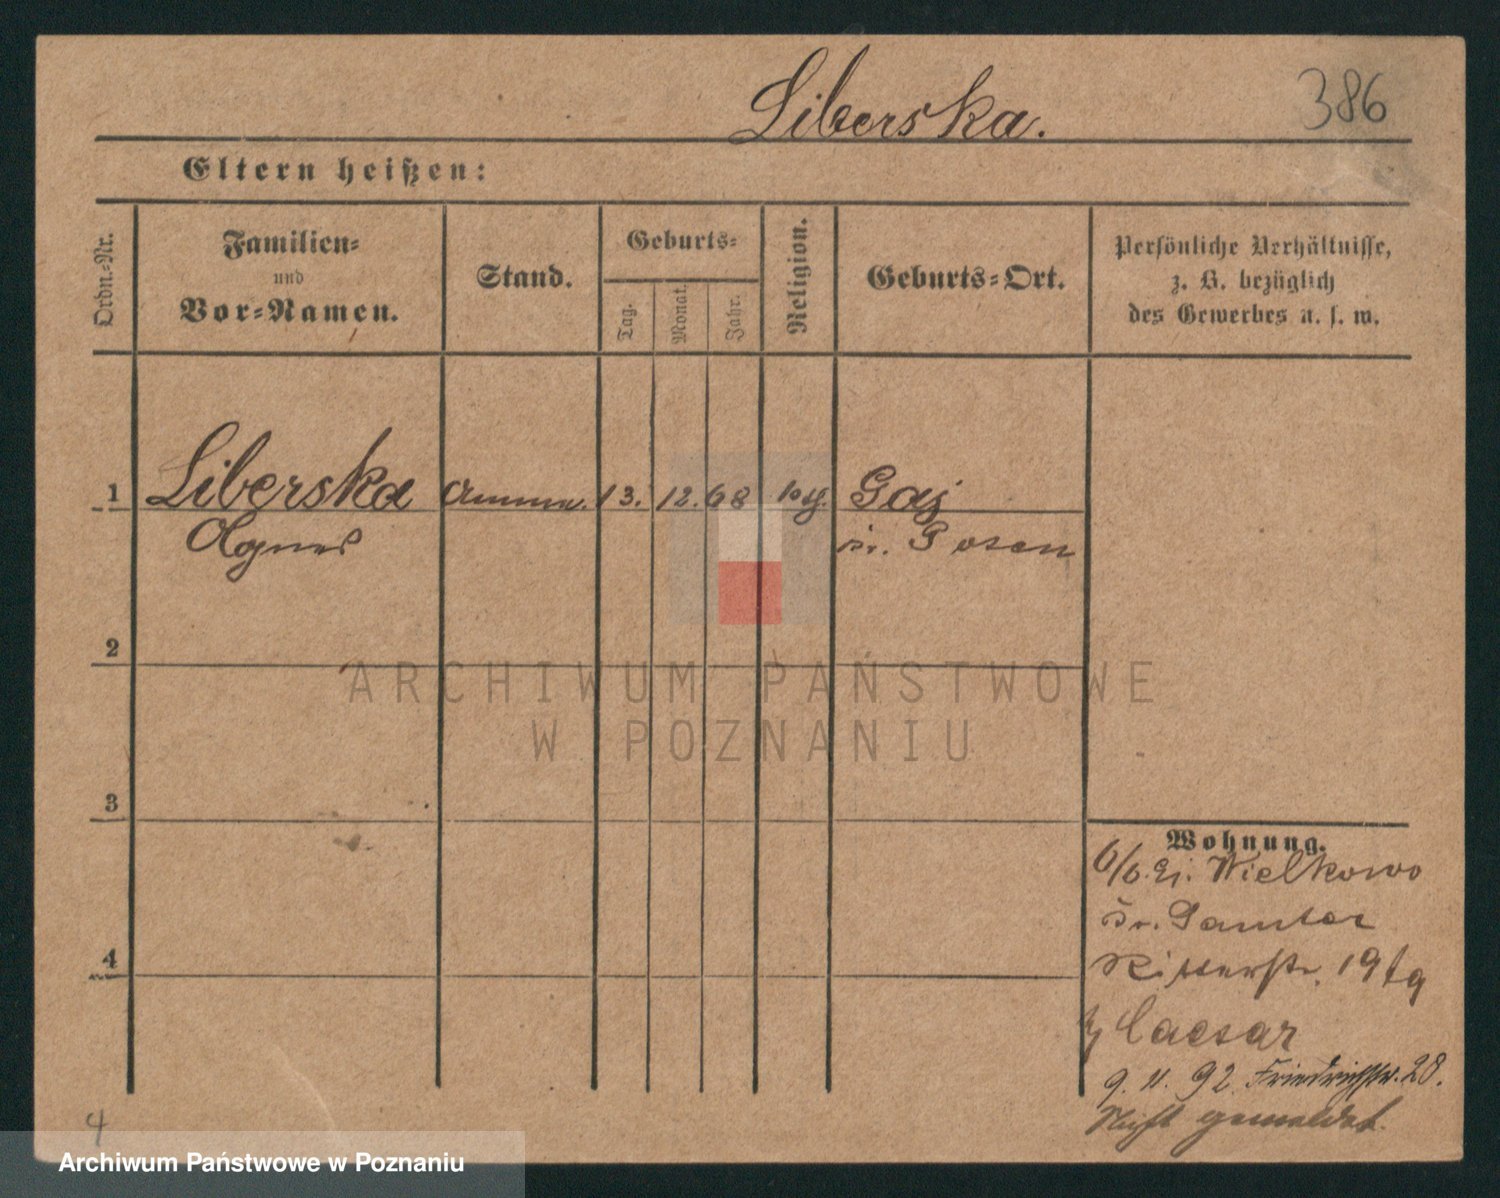 Liberska.
386
Eltern heißen:
Ordn.-Nr.
Familien-
und
Vor-Namen.
Stand.
Geburts-
Tag.
Monat.
Jahr.
Religion.
Geburts-Ort.
Persönliche Verhältnisse,
z. B. bezüglich
des Gewerbes u. s. w.
1
Liberska
Amme.
13.
12.
68
Gaj
Agnes
Kr. Posen
2
ARCHIWUM PAŃSTWOWE
W POZNANIU
3
Wohnung.
6/6. Wielkowo
Kr. Samter
4
Ritterstr. 19
Caesar
9. 11. 92. Friedrichstr. 20.
Nicht gemeldet.
4
Archiwum Państwowe w Poznaniu